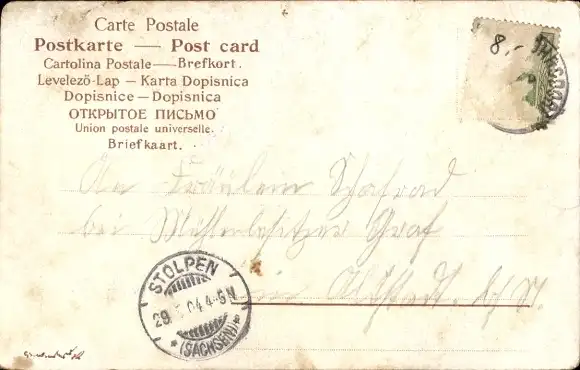 Carte Postale
Postkarte — Post card
Cartolina Postale — Brefkort.
Levelező-Lap — Karta Dopisnica
Dopisnice — Dopisnica
ОТКРЫТОЕ ПИСЬМО
Union postale universelle.
Briefkaart.
8,-
An Fräulein
bei Mühlenbesitzer Graf
in Altstadt
STOLPEN
29. 04. 4-5 N
* (SACHSEN) *